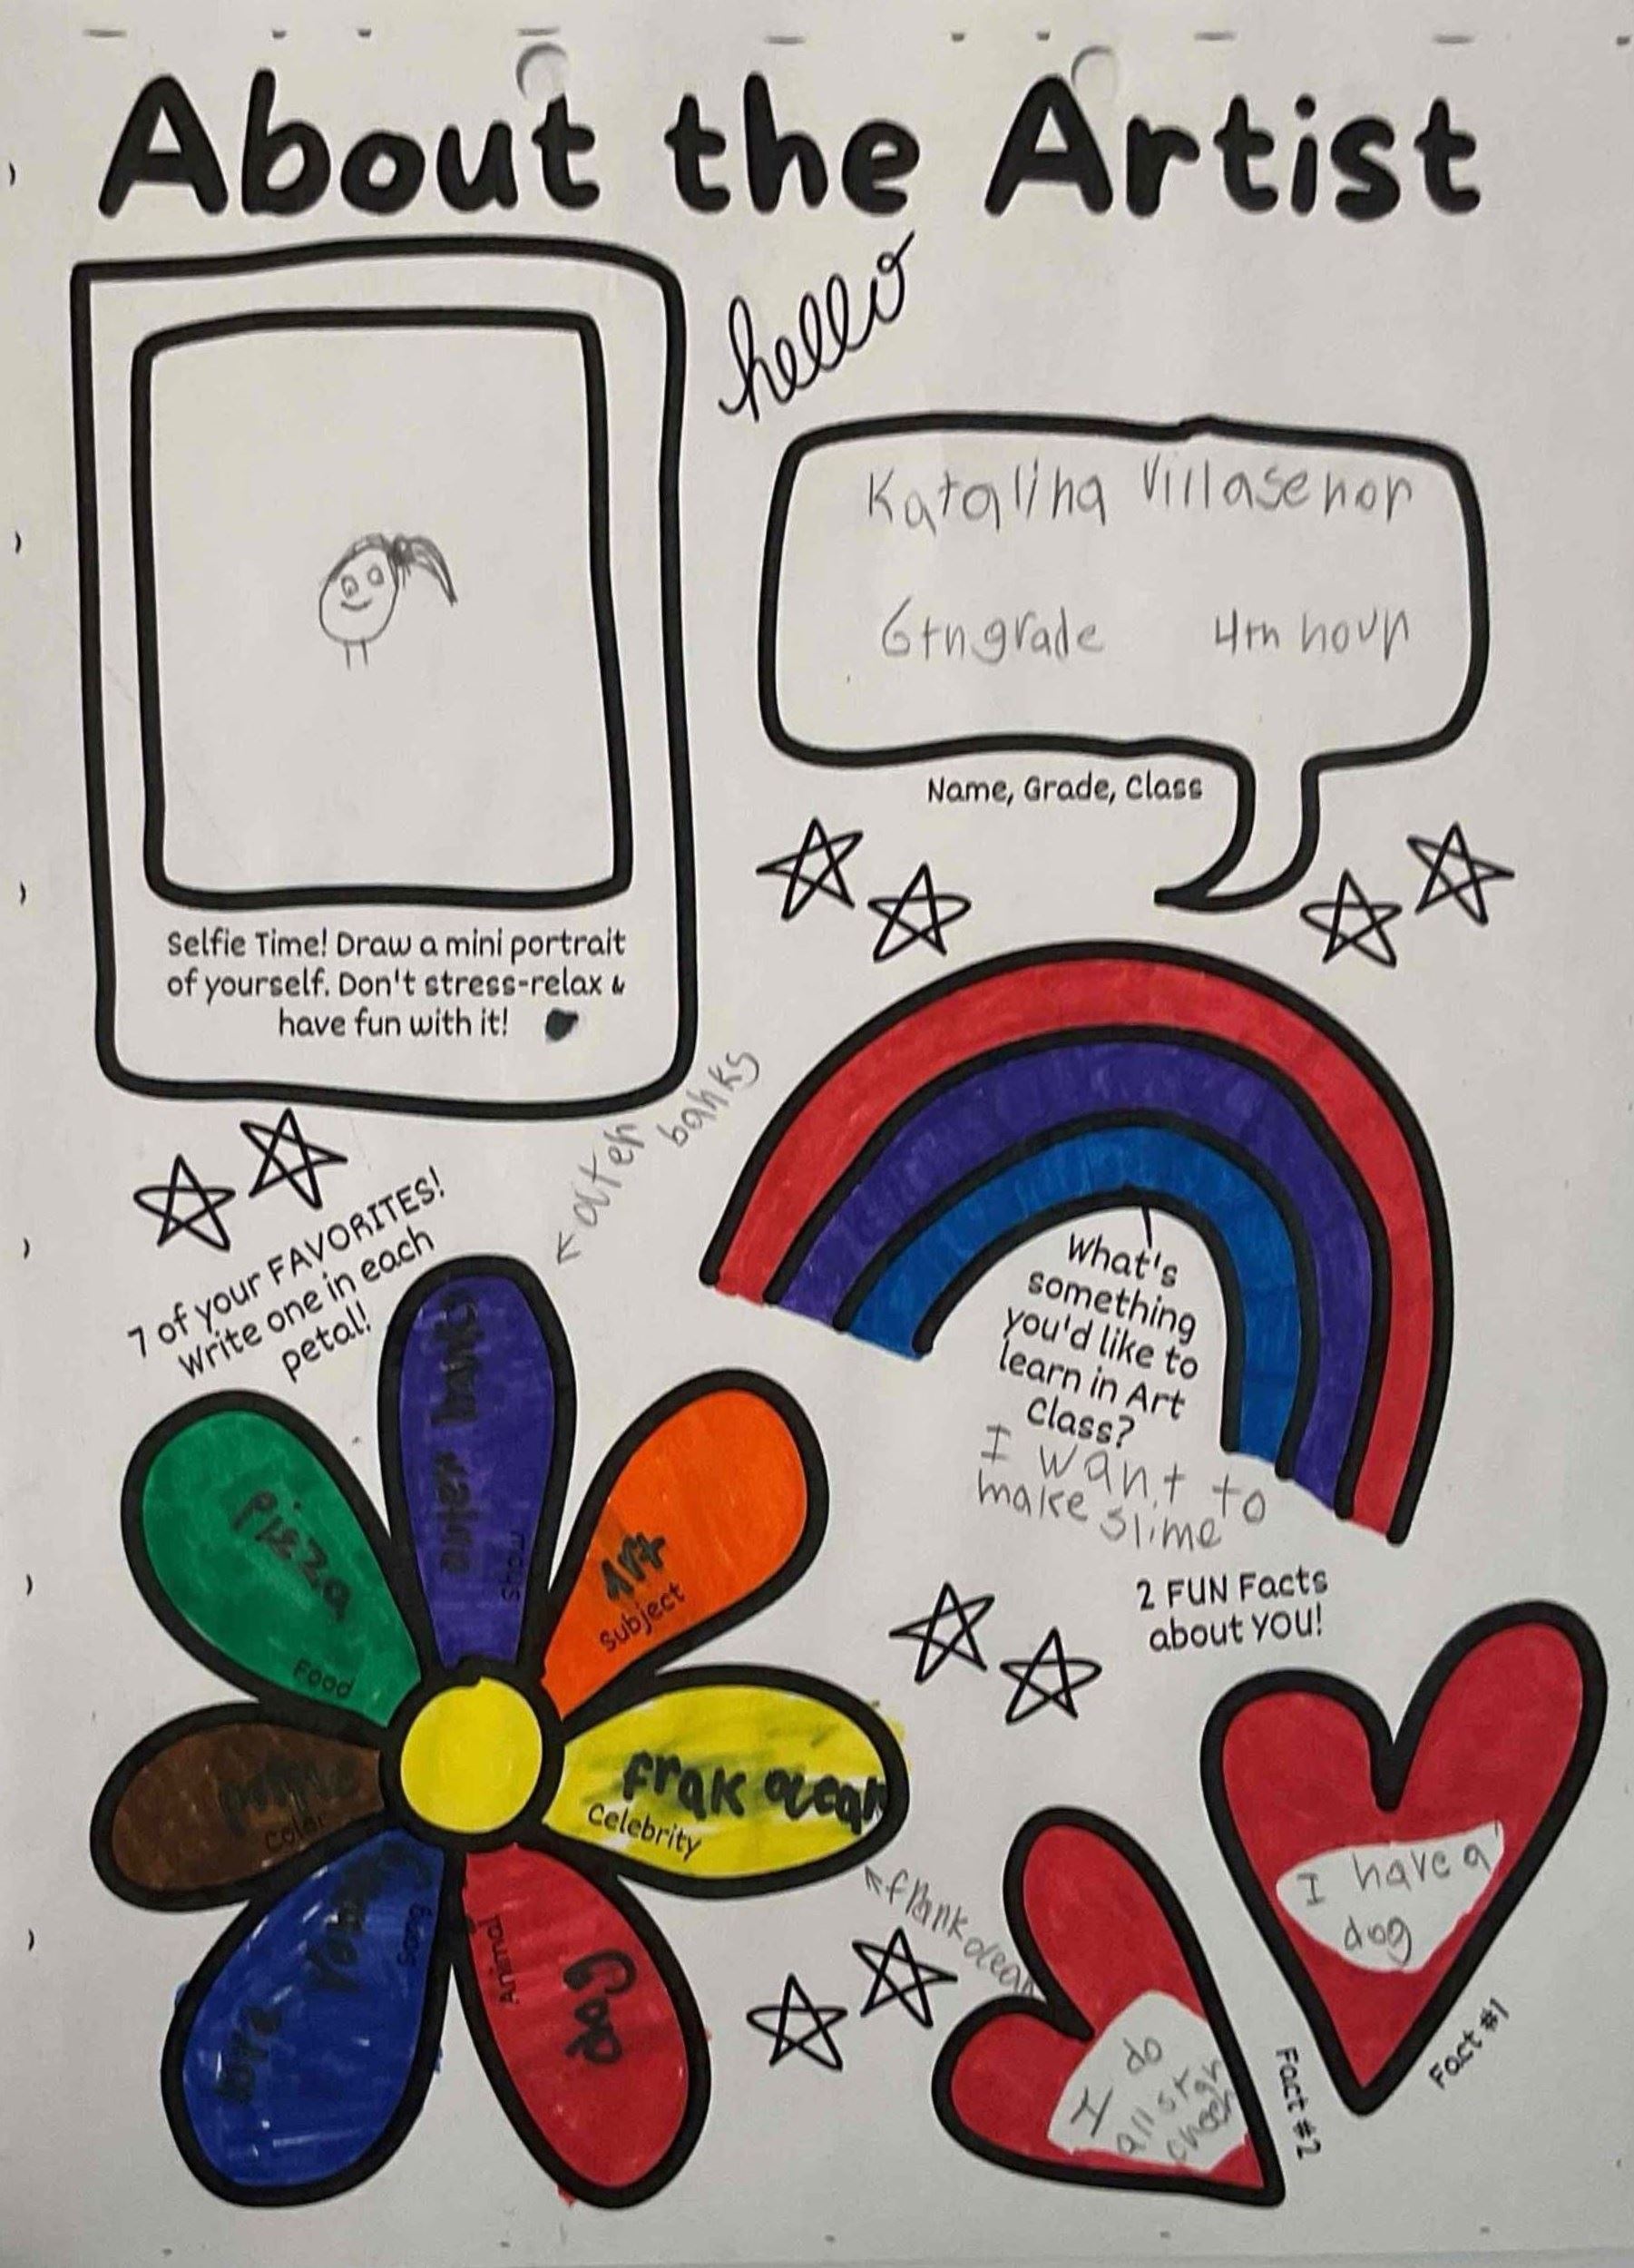 About the Artist
hello
Katalina Villasenor
6th grade 4th hour
Name, Grade, Class
Selfie Time! Draw a mini portrait
of yourself. Don't stress-relax &
have fun with it!
7 of your FAVORITES!
Write one in each
petal!
outer
banks
outer banks
Shows
Pizza
Food
Art
Subject
frak ocean
Celebrity
frank ocean
dog
Animal
Song
purple
Color
What's
something
you'd like to
learn in Art
Class?
I want to
make slime
2 FUN Facts
about YOU!
I have a
dog
Fact #1
I do
all str
Fact #2